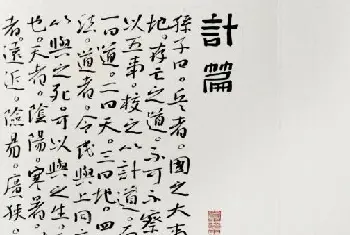 計篇
孫子曰。兵者。國之大事
地。存亡之道。不可不察
以五事。校之以計。
一曰道。二曰天。三曰地。四
法。道者。令民與上同意
以與之死。可以與之生。
也。天者。陰陽。寒暑。
者。遠近。險易。廣狹。